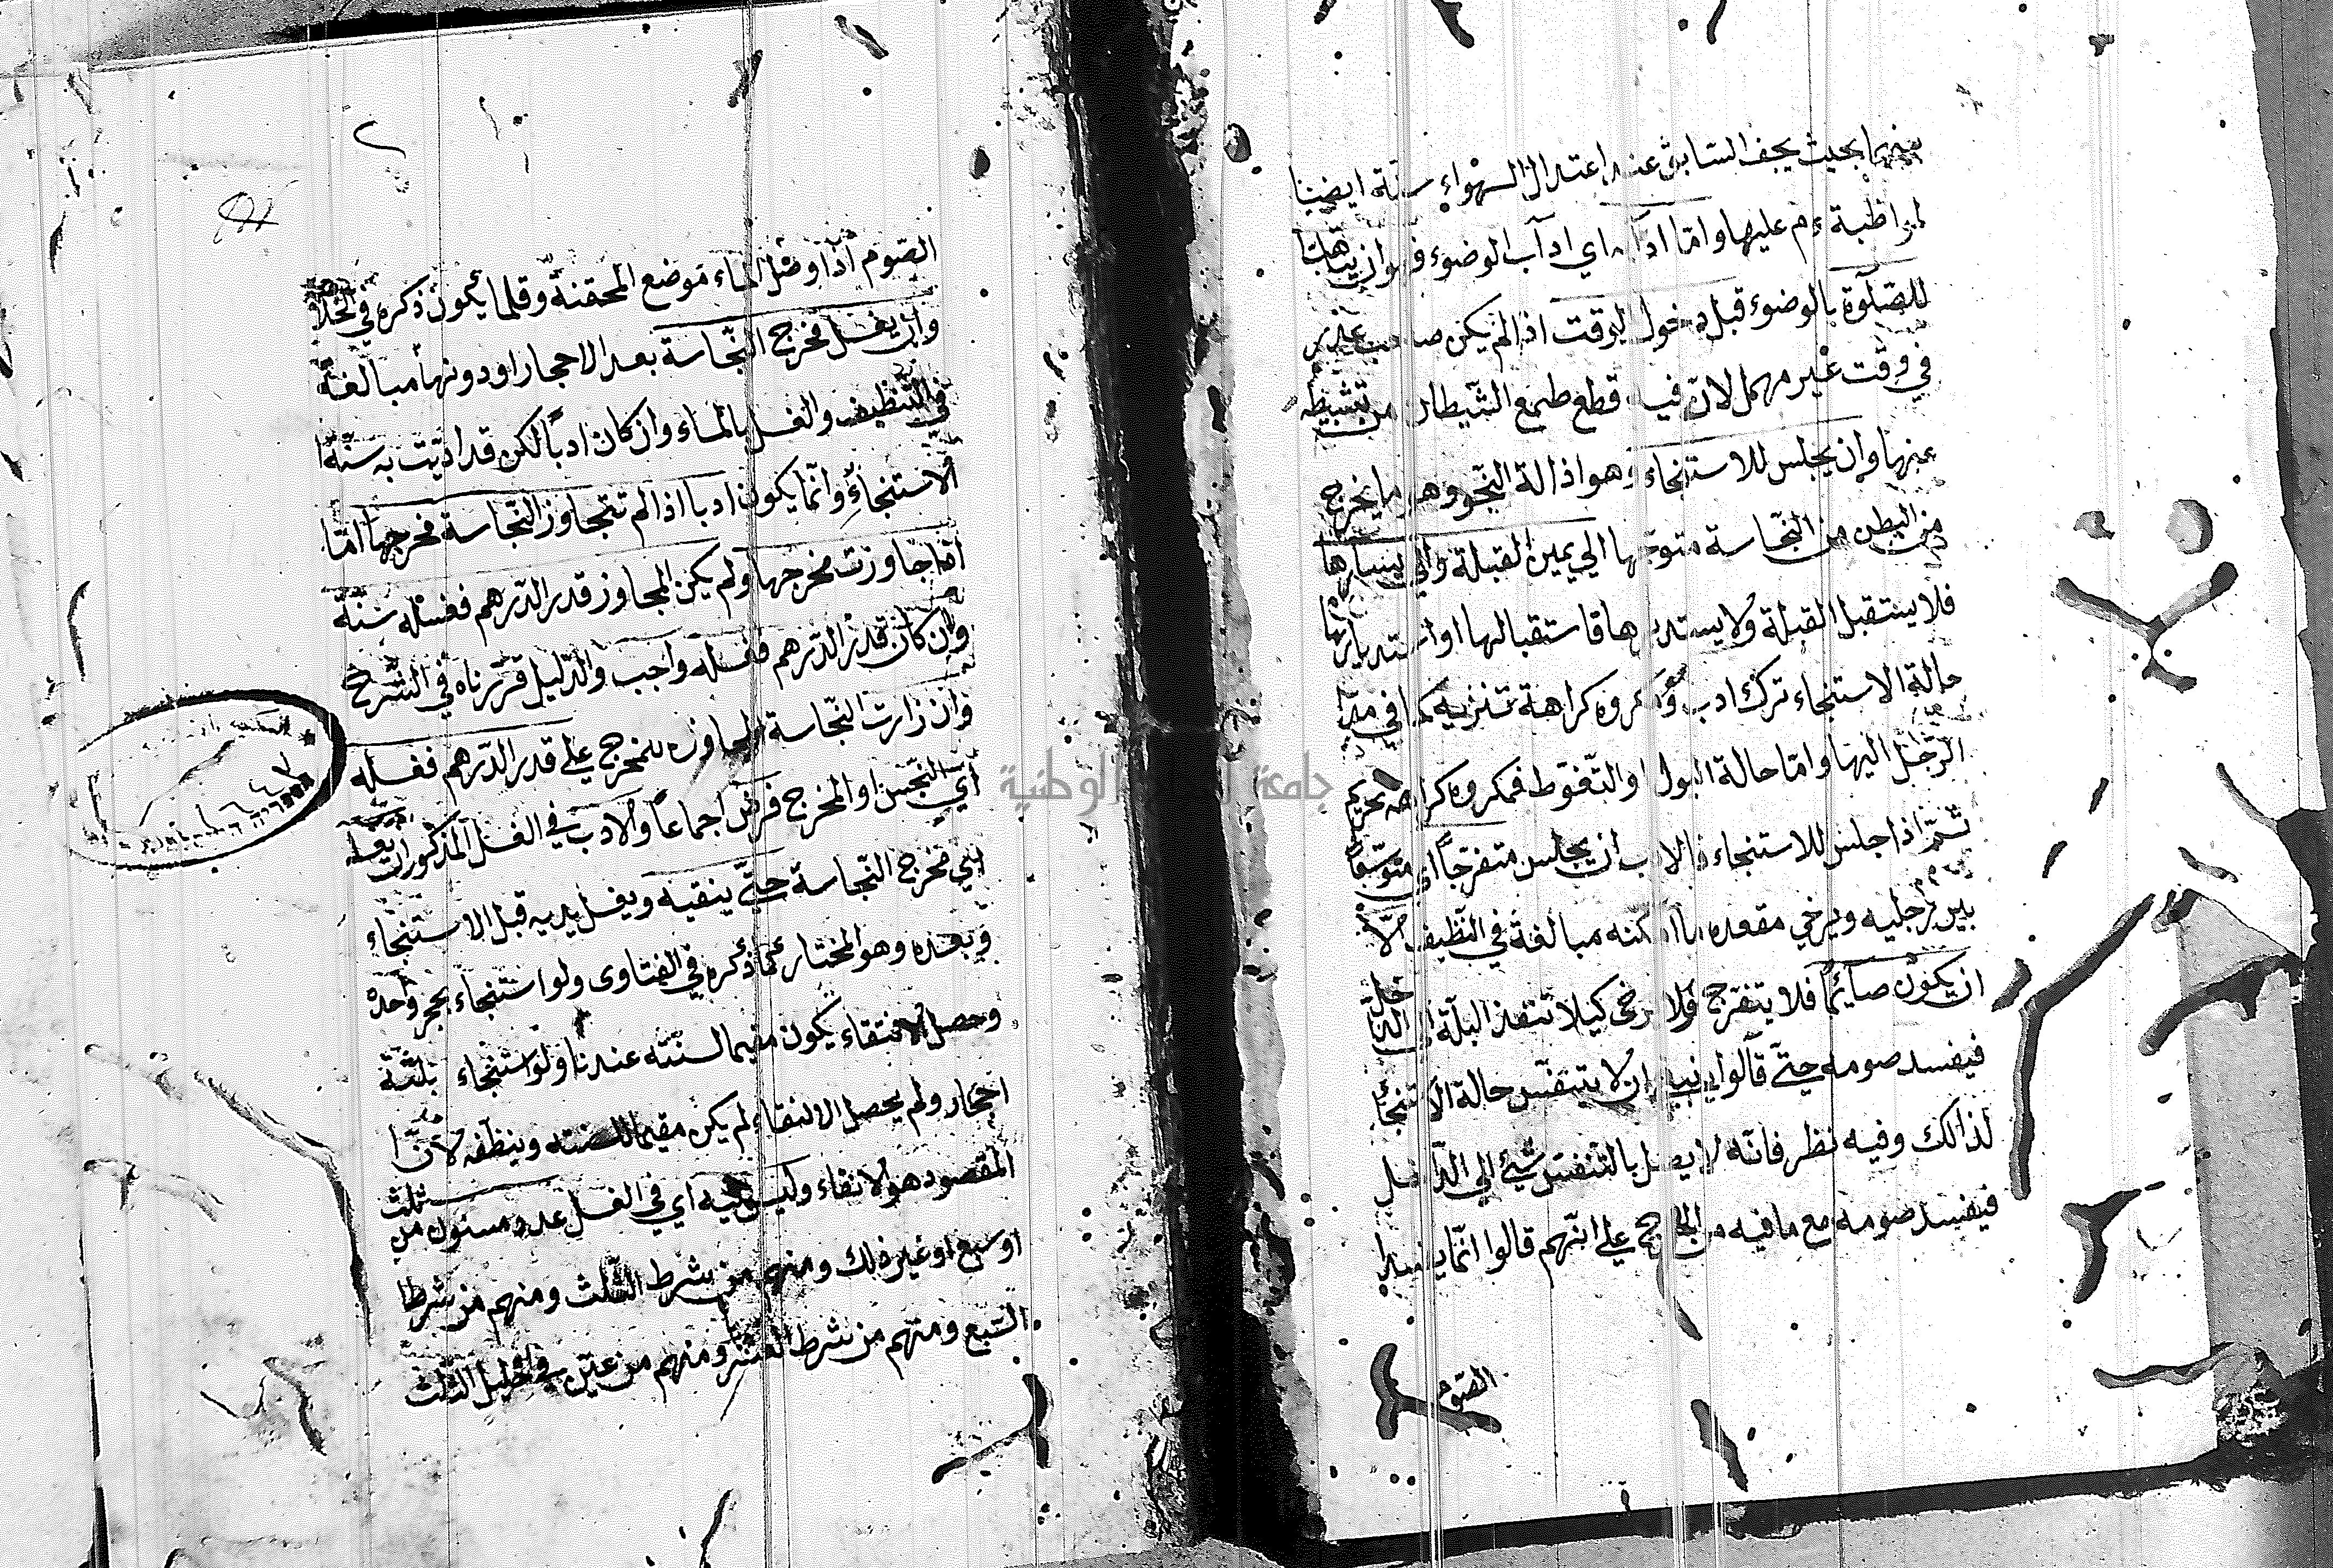 بينهما بحيث يجف السابق عند اعتدال الهواء سنة ايضا
لمواظبة ءم عليها واما ادابه اي اداب الوضوء فهو ان يتاهب
للصلوة بالوضوء قبل دخول الوقت اذا لم يكن صاحب عذر
في وقت غير مهمل لان فيه قطع طمع الشيطان من تثبيطه
عنها وان يجلس للاستنجاء وهو اذالة النجو وهو ما يخرج
من البطن من النجاسة متوجها الي يمين القبلة والي يسارها
فلا يستقبل القبلة ولا يستدبرها فاستقبالها او استدبارها
حالة الاستنجاء ترك ادب ومكروه كراهة تنزيه كما في مد
الرجل اليها واما حالة البول او التغوط فمكروه كراهة تحريم
ثم اذا جلس للاستنجاء فالادب ان يجلس متفرجا اي متوسعا
بين رجليه ويرخي مقعده ما امكنه مبالغة في التنظيف الا
ان يكون صائما فلا يتفرج ولا يرخى كيلا تنفذ البلة الى الداخل
فيفسد صومه حتي قالوا ينبغي ان لا يتنفس حالة الاستنجاء
لذالك وفيه نظر فانه لا يصل بالتنفس شيئ الي الداخل
فيفسد صومه مع ما فيه من الحرج علي انهم قالوا انما يفسد
الصوم
الصوم اذا وصل الماء موضع المحقنة وقلما يكون ذكره في الخلاصة
وان يغسل مخرج النجاسة بعد الاحجار او دونها مبالغة
في التنظيف والغسل بالماء وان كان ادبا لكن قد اديت به سنة
الاستنجاء وانما يكون ادبا اذا لم تتجاوز النجاسة مخرجها اما
اذا جاوزت مخرجها ولم يكن المجاوز قدر الدرهم فغسله سنة
وان كان قدر الدرهم فغسله واجب والدليل قررناه في الشرح
وان زادت النجاسة المجاوزه للمخرج علي قدر الدرهم فغسله
اي النجس او المخرج فرض اجماعا والادب في الغسل المذكور ان يغسله
اي مخرج النجاسة حتي ينقيه ويغسل يديه قبل الاستنجاء
وبعده وهو المختار كما ذكره في الفتاوى ولو استنجاء بحجر واحده
وحصل الانتقاء يكون مقيما لسنته عندنا ولو استنجاء بثلثة
احجار ولم يحصل الانقاء لم يكن مقيما للسنته وينظفه لان
المقصود هو الانقاء وليس فيه اي في الغسل عدد مسنون من ثلث
او سبع او غير ذلك ومنهم من شرط الثلث ومنهم من شرط
السبع ومنهم من شرط العشر ومنهم من عين في احليل الثلث